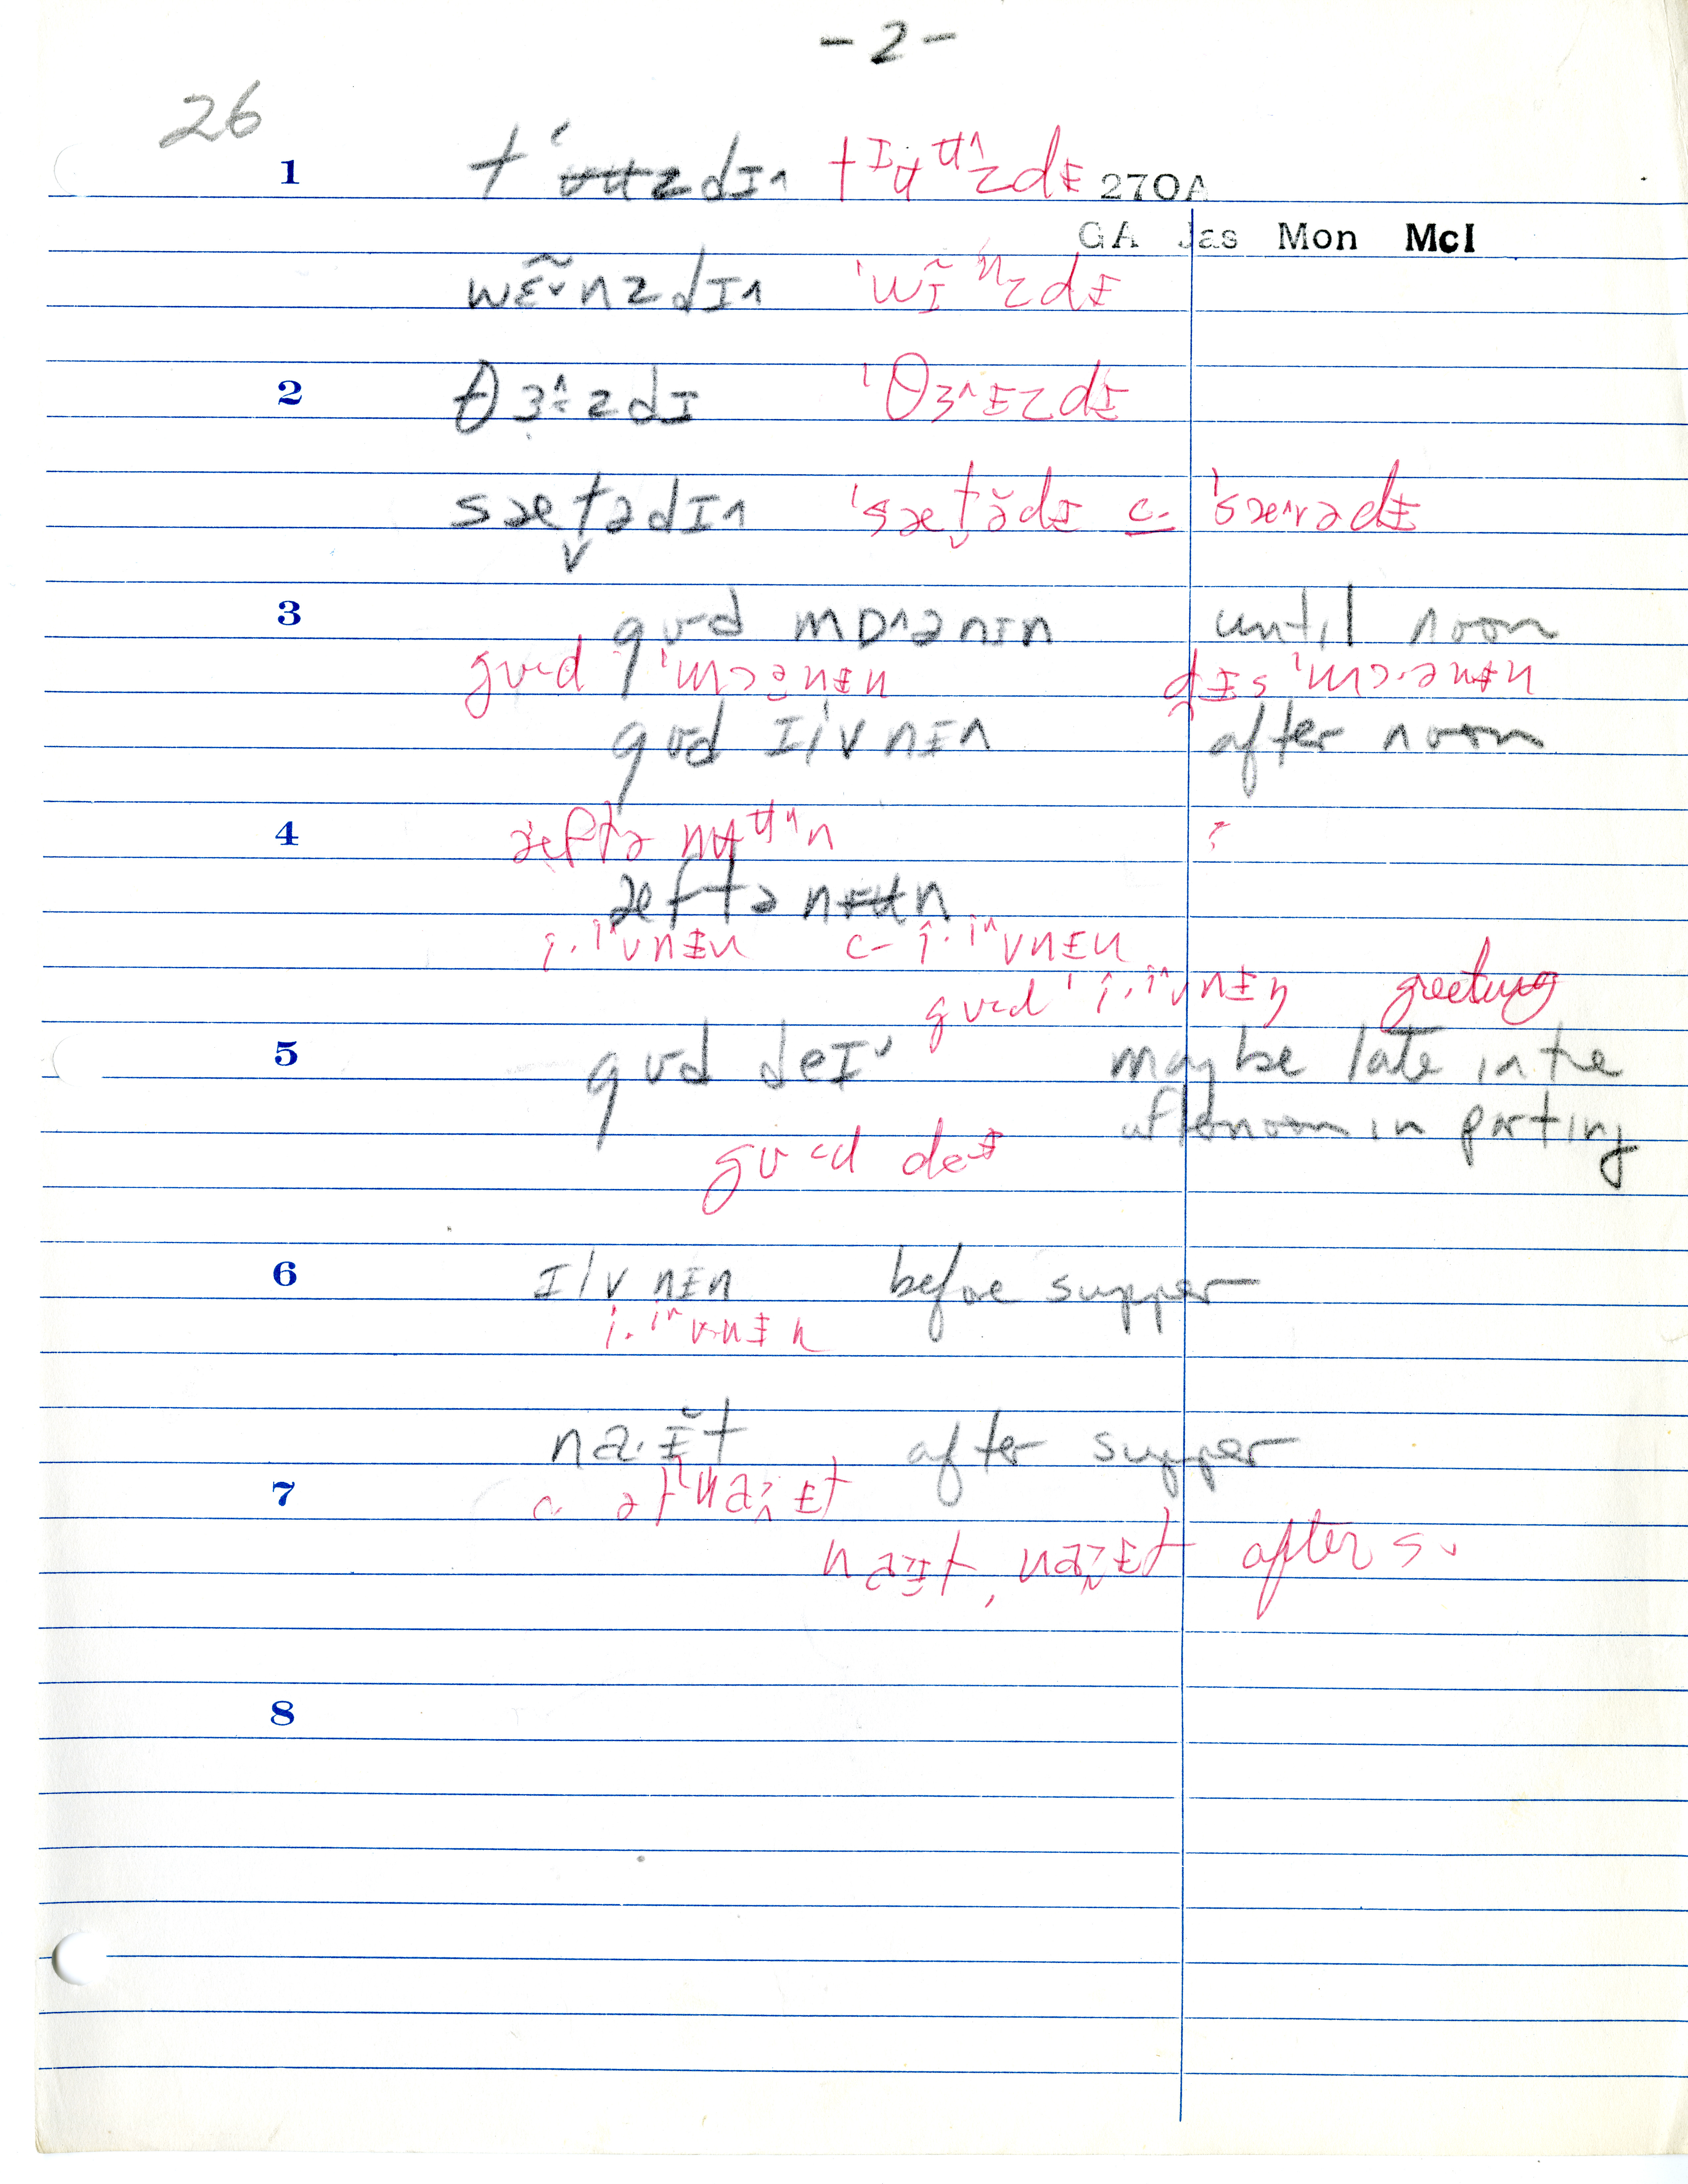 - 2 -
26
1 tʉʉzdɪ˄ tɪʉʉ˄zdɪ̵ 270A
GA Jas Mon McI
wɛ̃˅nzdɪ˄ ˈwɪ̃ⁿzdɪ̵
2 θɜ˄zdɪ ˈθɜ˄ɪ̵zdɪ̵
sæt̬ədɪ˄ ˈsæt̬ə̆dɪ̵ c. ˈsæ˄ɾədɪ̵
3 gʊd mɒ˄ənɪn until noon
gʊd ˈmɔənɪ̵n dɪ̵s ˈmɔ·ənɪ̵n
gʊd i/vnɪ̵n after noon
4 æftə nʉʉⁿn ?
æftə nʉʉn
i·i˄vnɪ̵n c- i·i˄vnɪ̵n
gʊd ˈi·i˄vnɪ̵n greeting
5 gʊd deɪ˅ may be late in the
afternoon in parting
gʊd deɪ̵
6 i/vnɪ̵n before supper
i·i˄vnɪ̵n
na·ɪ̵̆t after supper
7 c. ətˈnaɪ̵t
naɪ̵t, naɪ̵t after s.
8